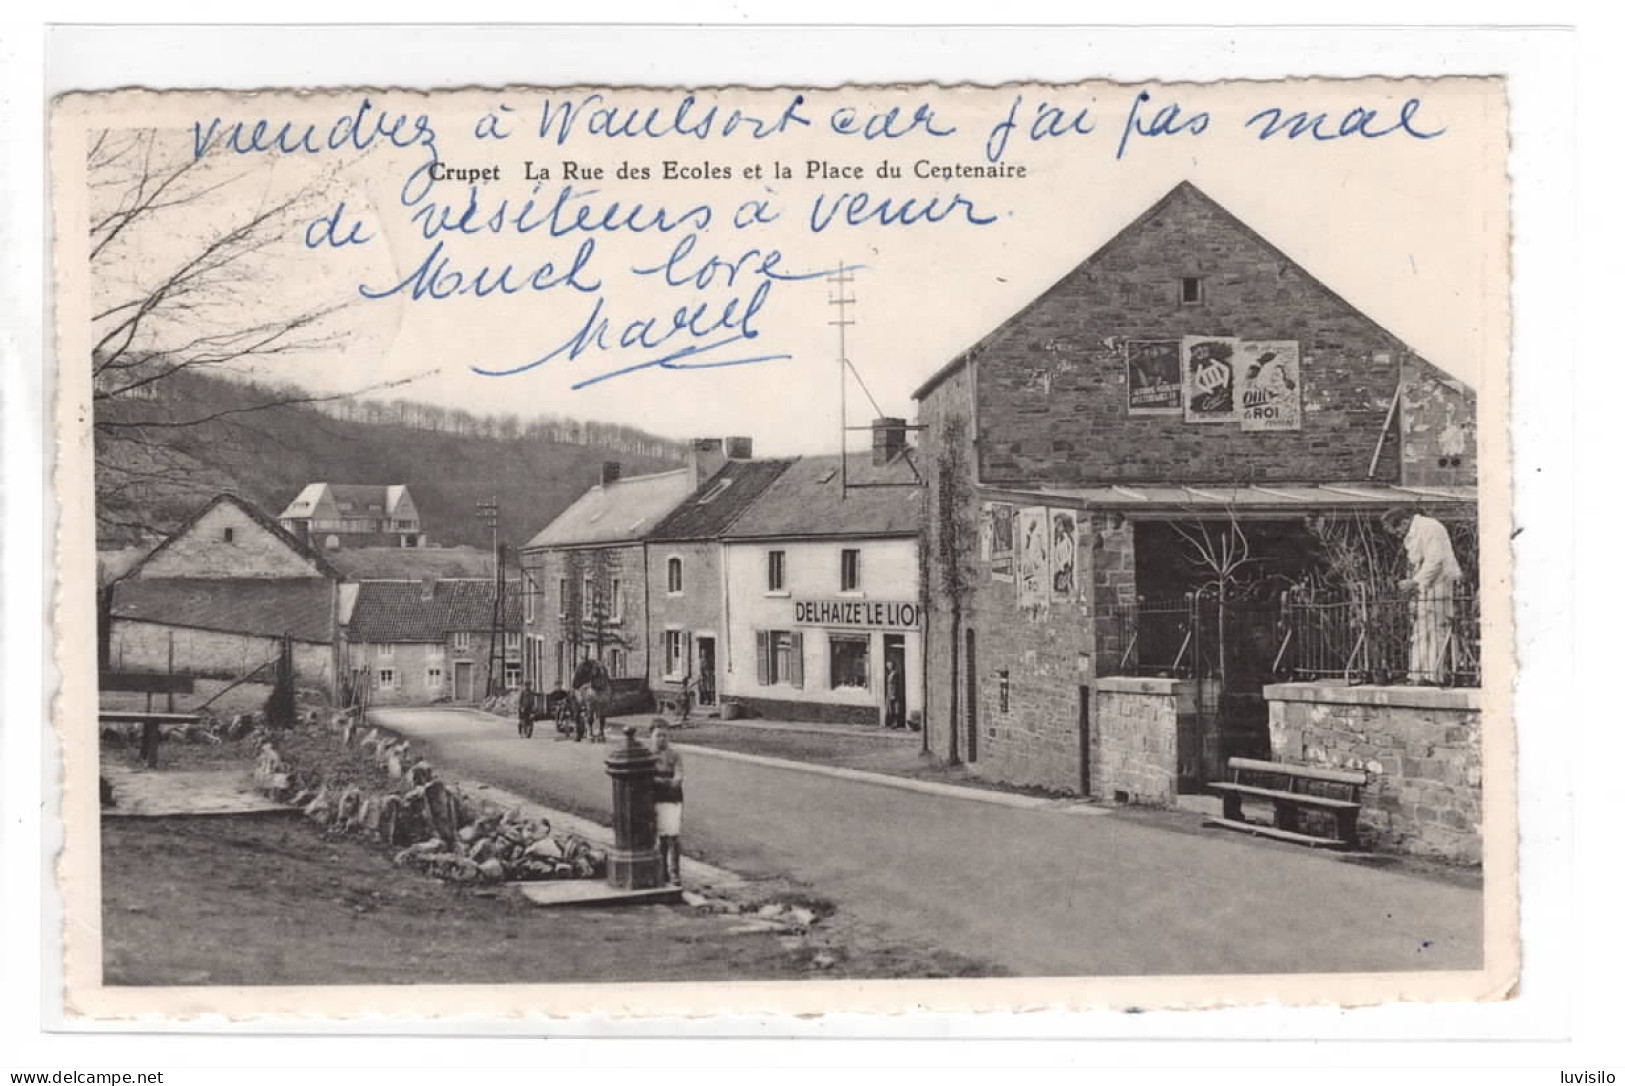 viendrez à Waulsort car j'ai pas mal
Crupet La Rue des Ecoles et la Place du Centenaire
de visiteurs à venir.
Much love
OUI
OUI
au ROI
DELHAIZE "LE LION
delcampe.net
luvisilo